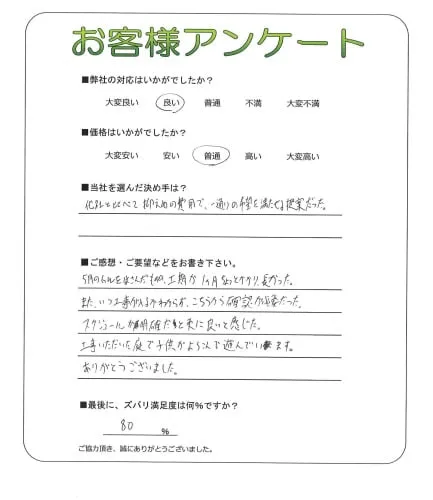 お客様アンケート
■弊社の対応はいかがでしたか？
大変良い 良い 普通 不満 大変不満
■価格はいかがでしたか？
大変安い 安い 普通 高い 大変高い
■当社を選んだ決め手は？
他社と比べて抑えめの費用で、一通りの希望を満たせる提案だった。
■ご感想・ご要望などをお書き下さい。
5月のGWをはさんだものの、工期が1ヶ月ほどとかかり、長かった。
また、いつ工事が入るかわからず、こちらから確認が必要だった。
スケジュールが明確だともっと更に良いと感じた。
工事いただいた庭で子供がよろこんで遊んでいます。
ありがとうございました。
■最後に、ズバリ満足度は何％ですか？
80 %
ご協力頂き、誠にありがとうございました。